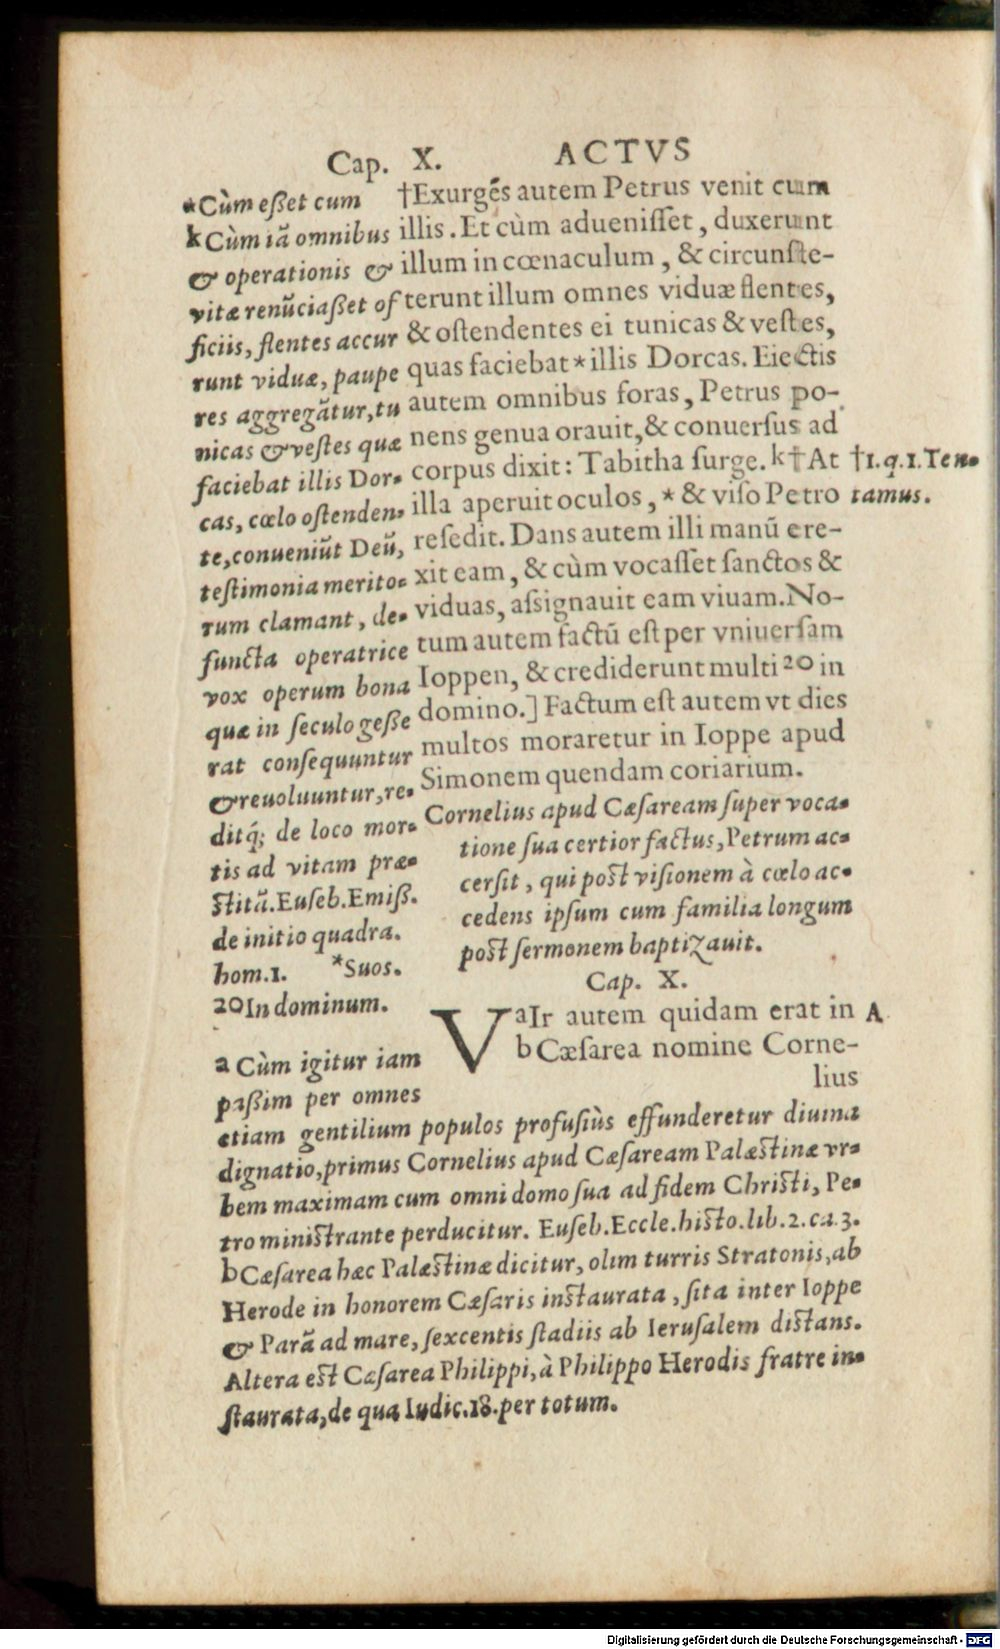 Cap. X. ACTVS
†Exurgẽs autem Petrus venit cum
illis. Et cùm adueniſſet, duxerunt
illum in cœnaculum, & circunſte-
terunt illum omnes viduæ flentes,
& oſtendentes ei tunicas & veſtes,
quas faciebat * illis Dorcas. Eiectis
autem omnibus foras, Petrus po-
nens genua orauit, & conuerſus ad
corpus dixit: Tabitha ſurge. k † At
illa aperuit oculos, * & viſo Petro
reſedit. Dans autem illi manũ ere-
xit eam, & cùm vocaſſet ſanctos &
viduas, aſsignauit eam viuam. No-
tum autem factũ eſt per vniuerſam
Ioppen, & crediderunt multi 20 in
domino.] Factum eſt autem vt dies
multos moraretur in Ioppe apud
Simonem quendam coriarium.
*Cùm eßet cum
k Cùm iã omnibus
& operationis &
vitæ renũciaßet of
ficiis, flentes accur
runt viduæ, paupe
res aggregãtur, tu
nicas & veſtes quæ
faciebat illis Dor-
cas, cælo oſtenden-
te, conueniũt Deũ,
teſtimonia merito-
rum clamant, de-
functa operatrice
vox operum bona
quæ in ſeculo geße
rat conſequuntur
& reuoluuntur, re-
ditq́; de loco mor-
tis ad vitam præ-
ſtitã. Euſeb. Emiß.
de initio quadra.
hom. 1. *Suos.
20 In dominum.
†1. q. 1. Ten-
tamus.
Cornelius apud Cæſaream ſuper voca-
tione ſua certior factus, Petrum ac-
cerſit, qui poſt viſionem à cælo ac-
cedens ipſum cum familia longum
poſt ſermonem baptizauit.
Cap. X.
V aIr autem quidam erat in A
b Cæſarea nomine Corne-
lius
a Cùm igitur iam
paßim per omnes
etiam gentilium populos profuſiùs effunderetur diuina
dignatio, primus Cornelius apud Cæſaream Palæſtinæ vr-
bem maximam cum omni domo ſua ad fidem Chriſti, Pe-
tro miniſtrante perducitur. Euſeb. Eccle. hiſto. lib. 2. ca. 3.
b Cæſarea hæc Palæſtinæ dicitur, olim turris Stratonis, ab
Herode in honorem Cæſaris inſtaurata, ſita inter Ioppe
& Parã ad mare, ſexcentis ſtadiis ab Ieruſalem diſtans.
Altera eſt Cæſarea Philippi, à Philippo Herodis fratre in-
ſtaurata, de qua Iudic. 18. per totum.
Digitalisierung gefördert durch die Deutsche Forschungsgemeinschaft - DFG